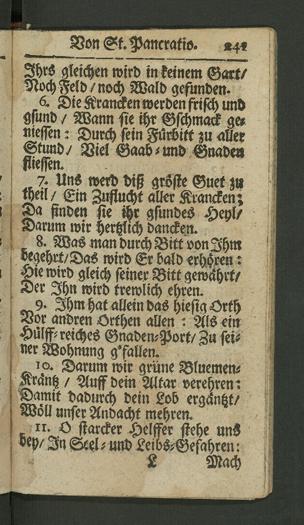 Von St. Pancratio. 241
Ihrs gleichen wird in keinem Gart/
Noch Feld/ noch Wald gefunden.
6. Die Krancken werden frisch und
gsund/ Wann sie ihr Gschmack ge-
niessen: Durch sein Fürbitt zu aller
Stund/ Viel Gaab- und Gnaden
fliessen.
7. Uns werd diß gröste Guet zu
theil/ Ein Zuflucht aller Krancken;
Da finden sie ihr gsundes Heyl/
Darum wir hertzlich dancken.
8. Was man durch Bitt von Ihm
begehrt/ Das wird Er bald erhören:
Hie wird gleich seiner Bitt gewährt/
Der Ihn wird trewlich ehren.
9. Ihm hat allein das hiesig Orth
Vor andren Orthen allen: Als ein
Hülff-reiches Gnaden-Port/ Zu sei-
ner Wohnung g'fallen.
10. Darum wir grüne Bluemen-
Kräntz/ Auff dein Altar verehren:
Damit dadurch dein Lob ergäntzt/
Wöll unser Andacht mehren.
11. O starcker Helffer stehe uns
bey/ In Seel- und Leibs-Gefahren:
L Mach